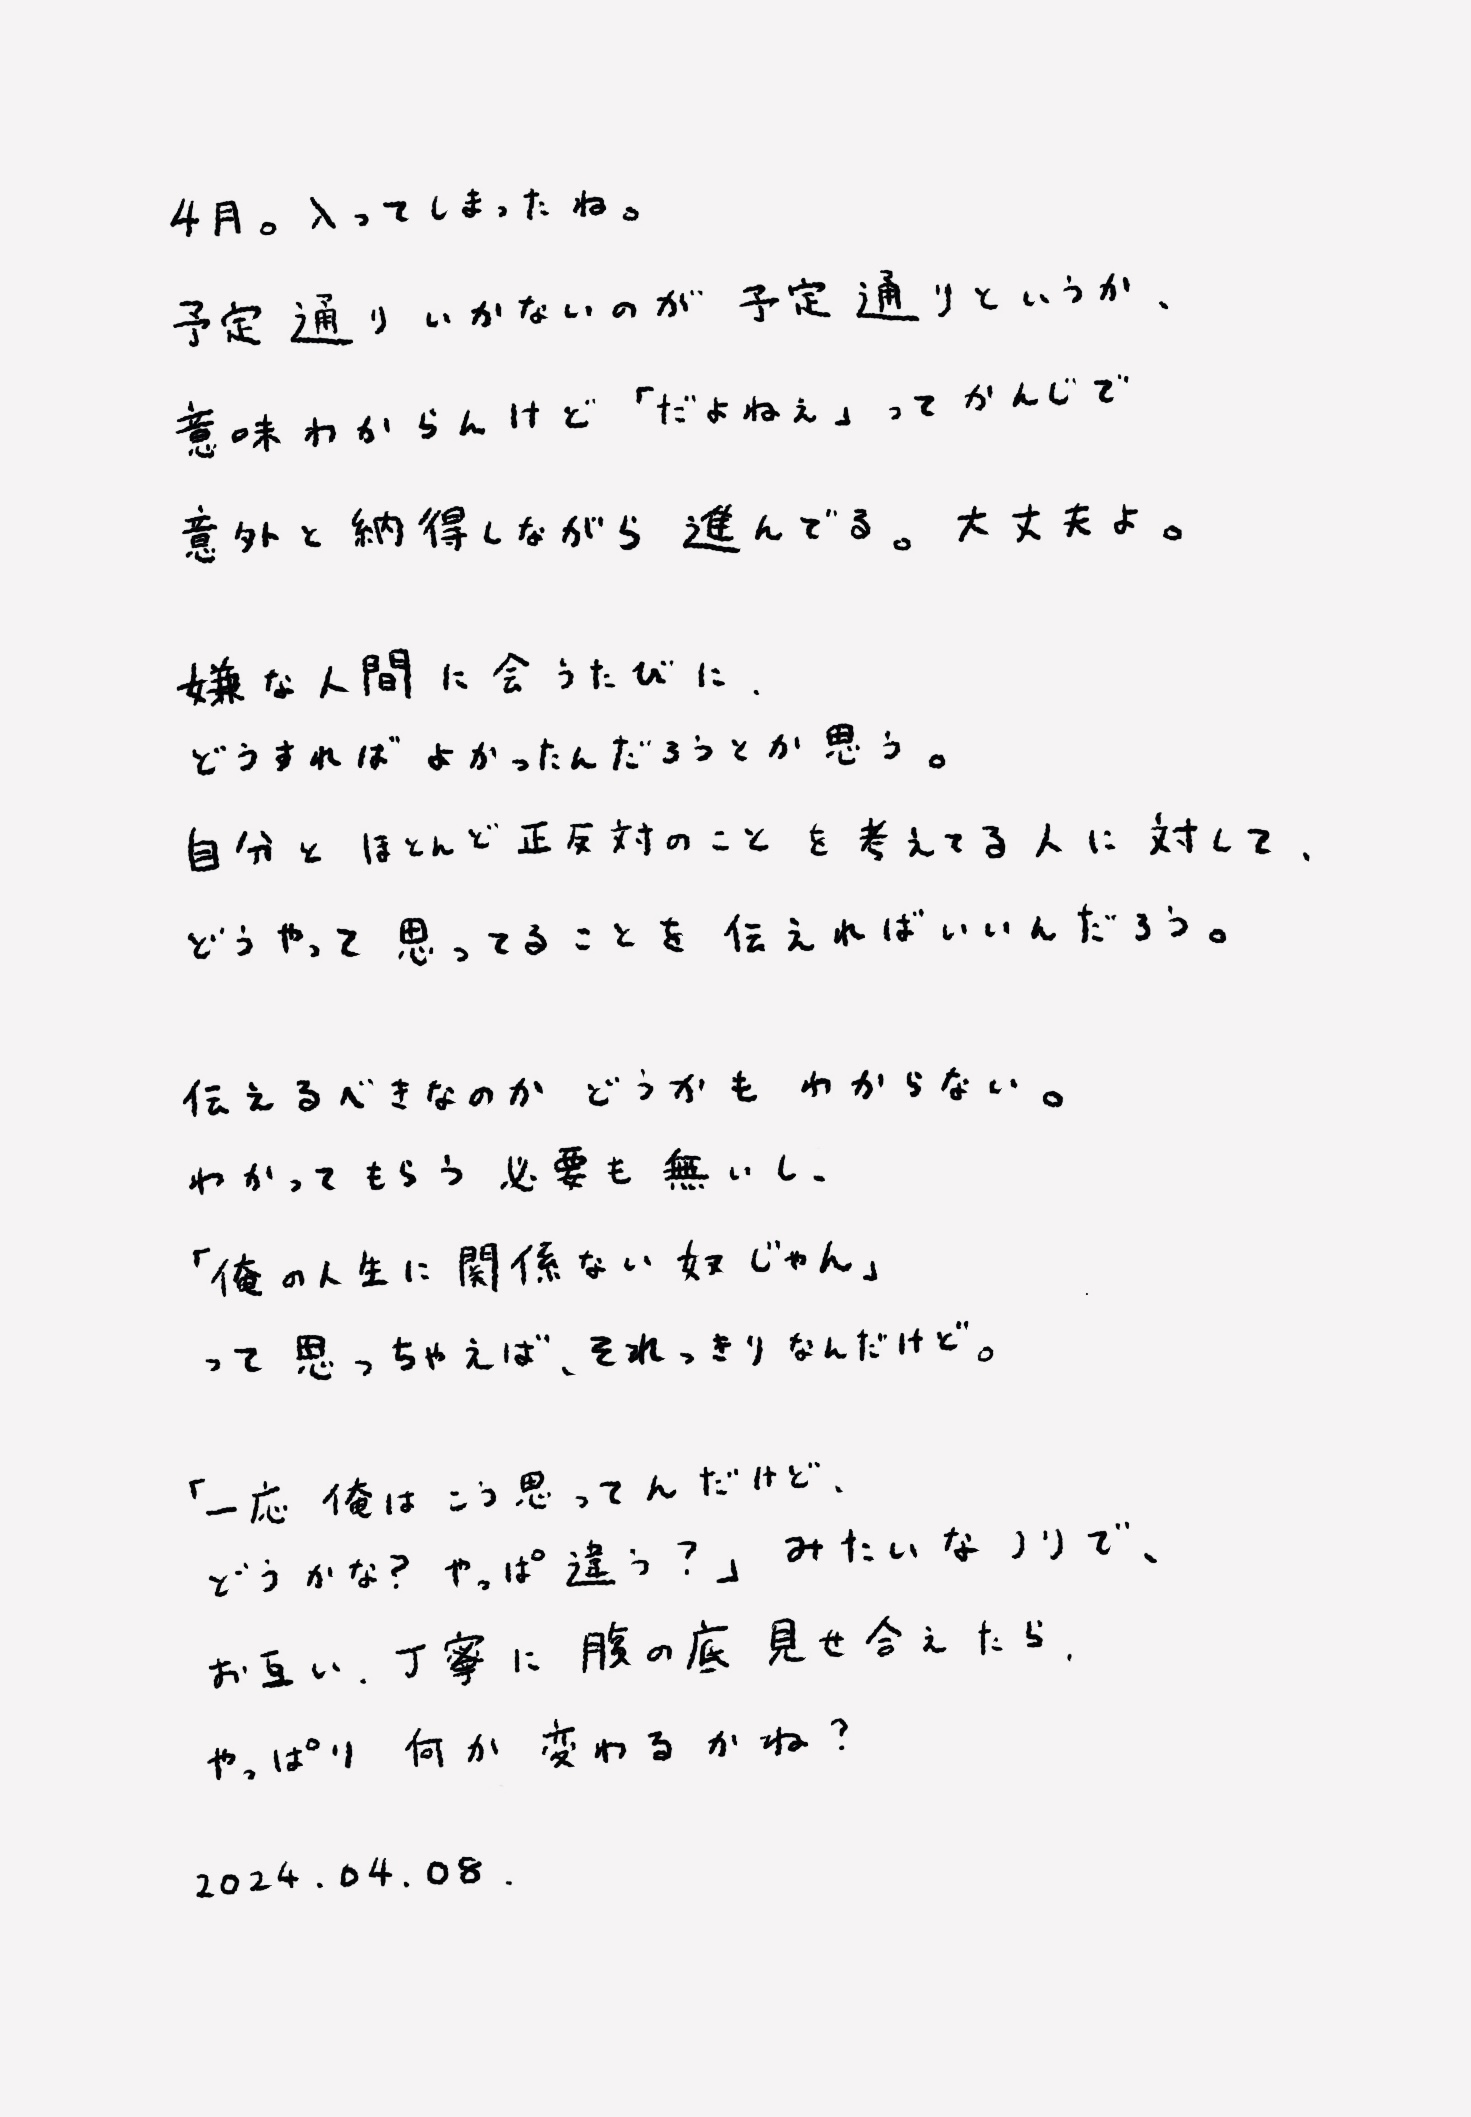 4月。入ってしまったね。
予定通りいかないのが予定通りというか、
意味わからんけど「だよねぇ」ってかんじで
意外と納得しながら進んでる。大丈夫よ。
嫌な人間に会うたびに、
どうすればよかったんだろうとか思う。
自分とほとんど正反対のことを考えてる人に対して、
どうやって思ってることを伝えればいいんだろう。
伝えるべきなのかどうかもわからない。
わかってもらう必要も無いし、
「俺の人生に関係ない奴じゃん」
って思っちゃえば、それっきりなんだけど。
「一応俺はこう思ってんだけど、
どうかな？やっぱ違う？」みたいなノリで、
お互い、丁寧に腹の底見せ合えたら、
やっぱり何か変わるかね？
2024.04.08.